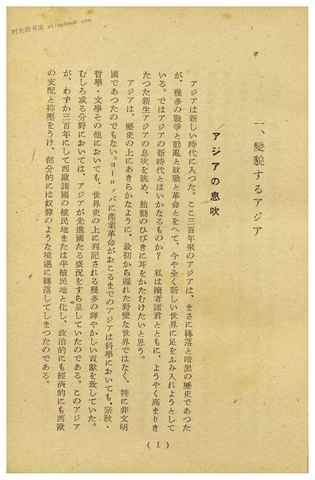 一、變貌するアジア
アジアの息吹
アジアは新しい時代に入つた。ここ三百年來のアジアは、まさに轉落と暗黒の歴史であつた
が、幾多の戰爭と動亂と敗戰と革命とをへて、今や全く新しい世界に足をふみ入れようとして
いる。ではアジアの新時代とはいかなるものか？ 私は讀者諸君とともに、ようやく高まりき
たつた新生アジアの息吹を眺め、胎動のひびきに耳をかたむけたいと思う。
アジアは、歴史の上にあきらかなように、最初から遲れた野蠻な世界ではなく、特に非文明
國であつたのでもない。ヨーロッパに産業革命がおこるまでのアジアは科學においても、宗教・
哲學・文學その他においても、世界史の上に列記される幾多の輝やかしい貢獻を致していた。
むしろ或る分野においては、アジアが先進國たる盛況をすら呈していたのである。このアジア
が、わずか三百年にして西歐諸國の植民地または半植民地と化し、政治的にも經濟的にも西歐
の支配と抑壓をうけ、部分的には奴隷のような境遇に轉落してしまつたのである。
( 1 )